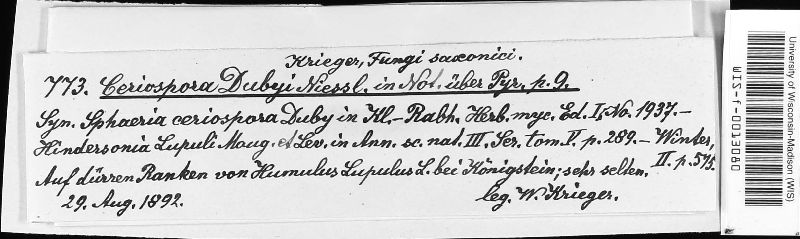 Krieger, Fungi saxonici.
773. Ceriospora Dubyi Niessl. in Not. über Pyr. p. 9.
Syn. Sphaeria ceriospora Duby in Kl.-Rabh. Herb. myc. Ed. I, No. 1937. —
Hindersonia Lupuli Moug. et Lev. in Ann. sc. nat. III. Ser. tom. V. p. 289. — Winter,
II. p. 575.
Auf dürren Ranken von Humulus Lupulus L. bei Königstein; sehr selten.
29. Aug. 1892.
leg. W. Krieger.
University of Wisconsin-Madison (WIS)
WIS-f-0013080